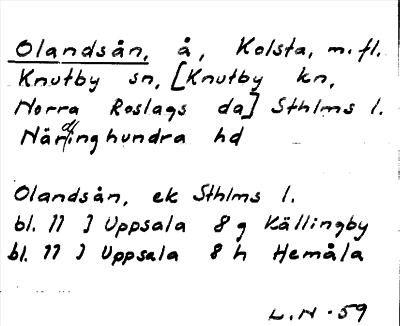 Olandsån, å, Kolsta, m.fl.
Knutby sn, [Knutby kn,
Norra Roslags da] Sthlms l.
Närdinghundra hd
Olandsån, ek Sthlms l.
bl. 11 I Uppsala 8 g Källingby
bl. 11 I Uppsala 8 h Hemåla
L.N-59